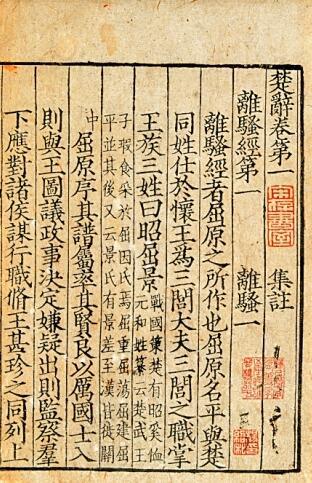 楚辭卷第一 集註
離騷經第一 離騷一
離騷經者屈原之所作也屈原名平與楚
同姓仕於懷王爲三閭大夫三閭之職掌
王族三姓曰昭屈景
戰國楚有昭奚恤
元和姓纂云楚武王
子瑕食采於屈因氏焉屈重屈蕩屈建屈
平並其後又云景氏有景差至漢皆徙關
中
屈原序其譜屬率其賢良以厲國士入
則與王圖議政事決定嫌疑出則監察羣
下應對諸侯謀行職脩王甚珍之同列上